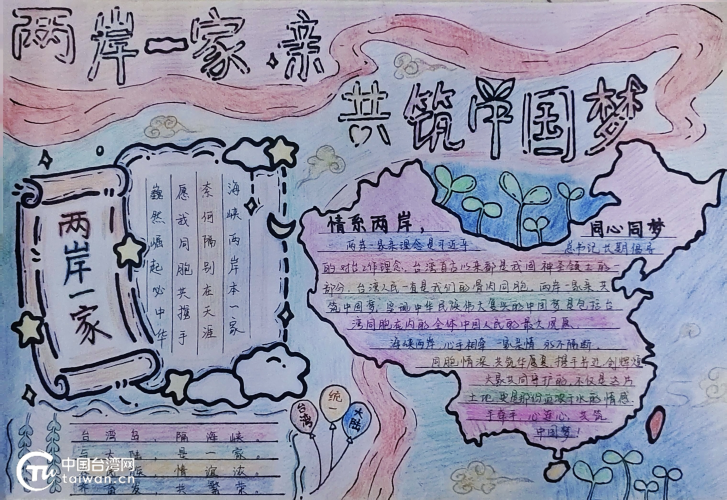 两岸一家亲
共筑中国梦
两岸一家
海峡两岸本一家
奈何隔别在天涯
愿我同胞共携手
巍然崛起必中华
情系两岸，
同心同梦
两岸一家亲理念是于近年
总书记长期倡导
的对台工作理念，台湾自古以来都是我国神圣领土的
部分，台湾人民一直是我们的骨肉同胞，两岸一家亲共
筑中国梦，
中华民族伟大复兴的中国梦是包括台
湾同胞在内的全体中国人民的最大愿景
海峡两岸 心手相牵 一家亲情 永不隔断
同胞情深 共筑华夏 携手共进 创辉煌
大家共同守护的，不仅是这片
土地，更是那份血浓于水的情感
手牵手，心连心，共筑
中国梦！
台湾岛，隔海峡，
与大陆，是一家，
情谊浓，
共繁荣，
台湾
统一
大陆
中国台湾网
taiwan.cn